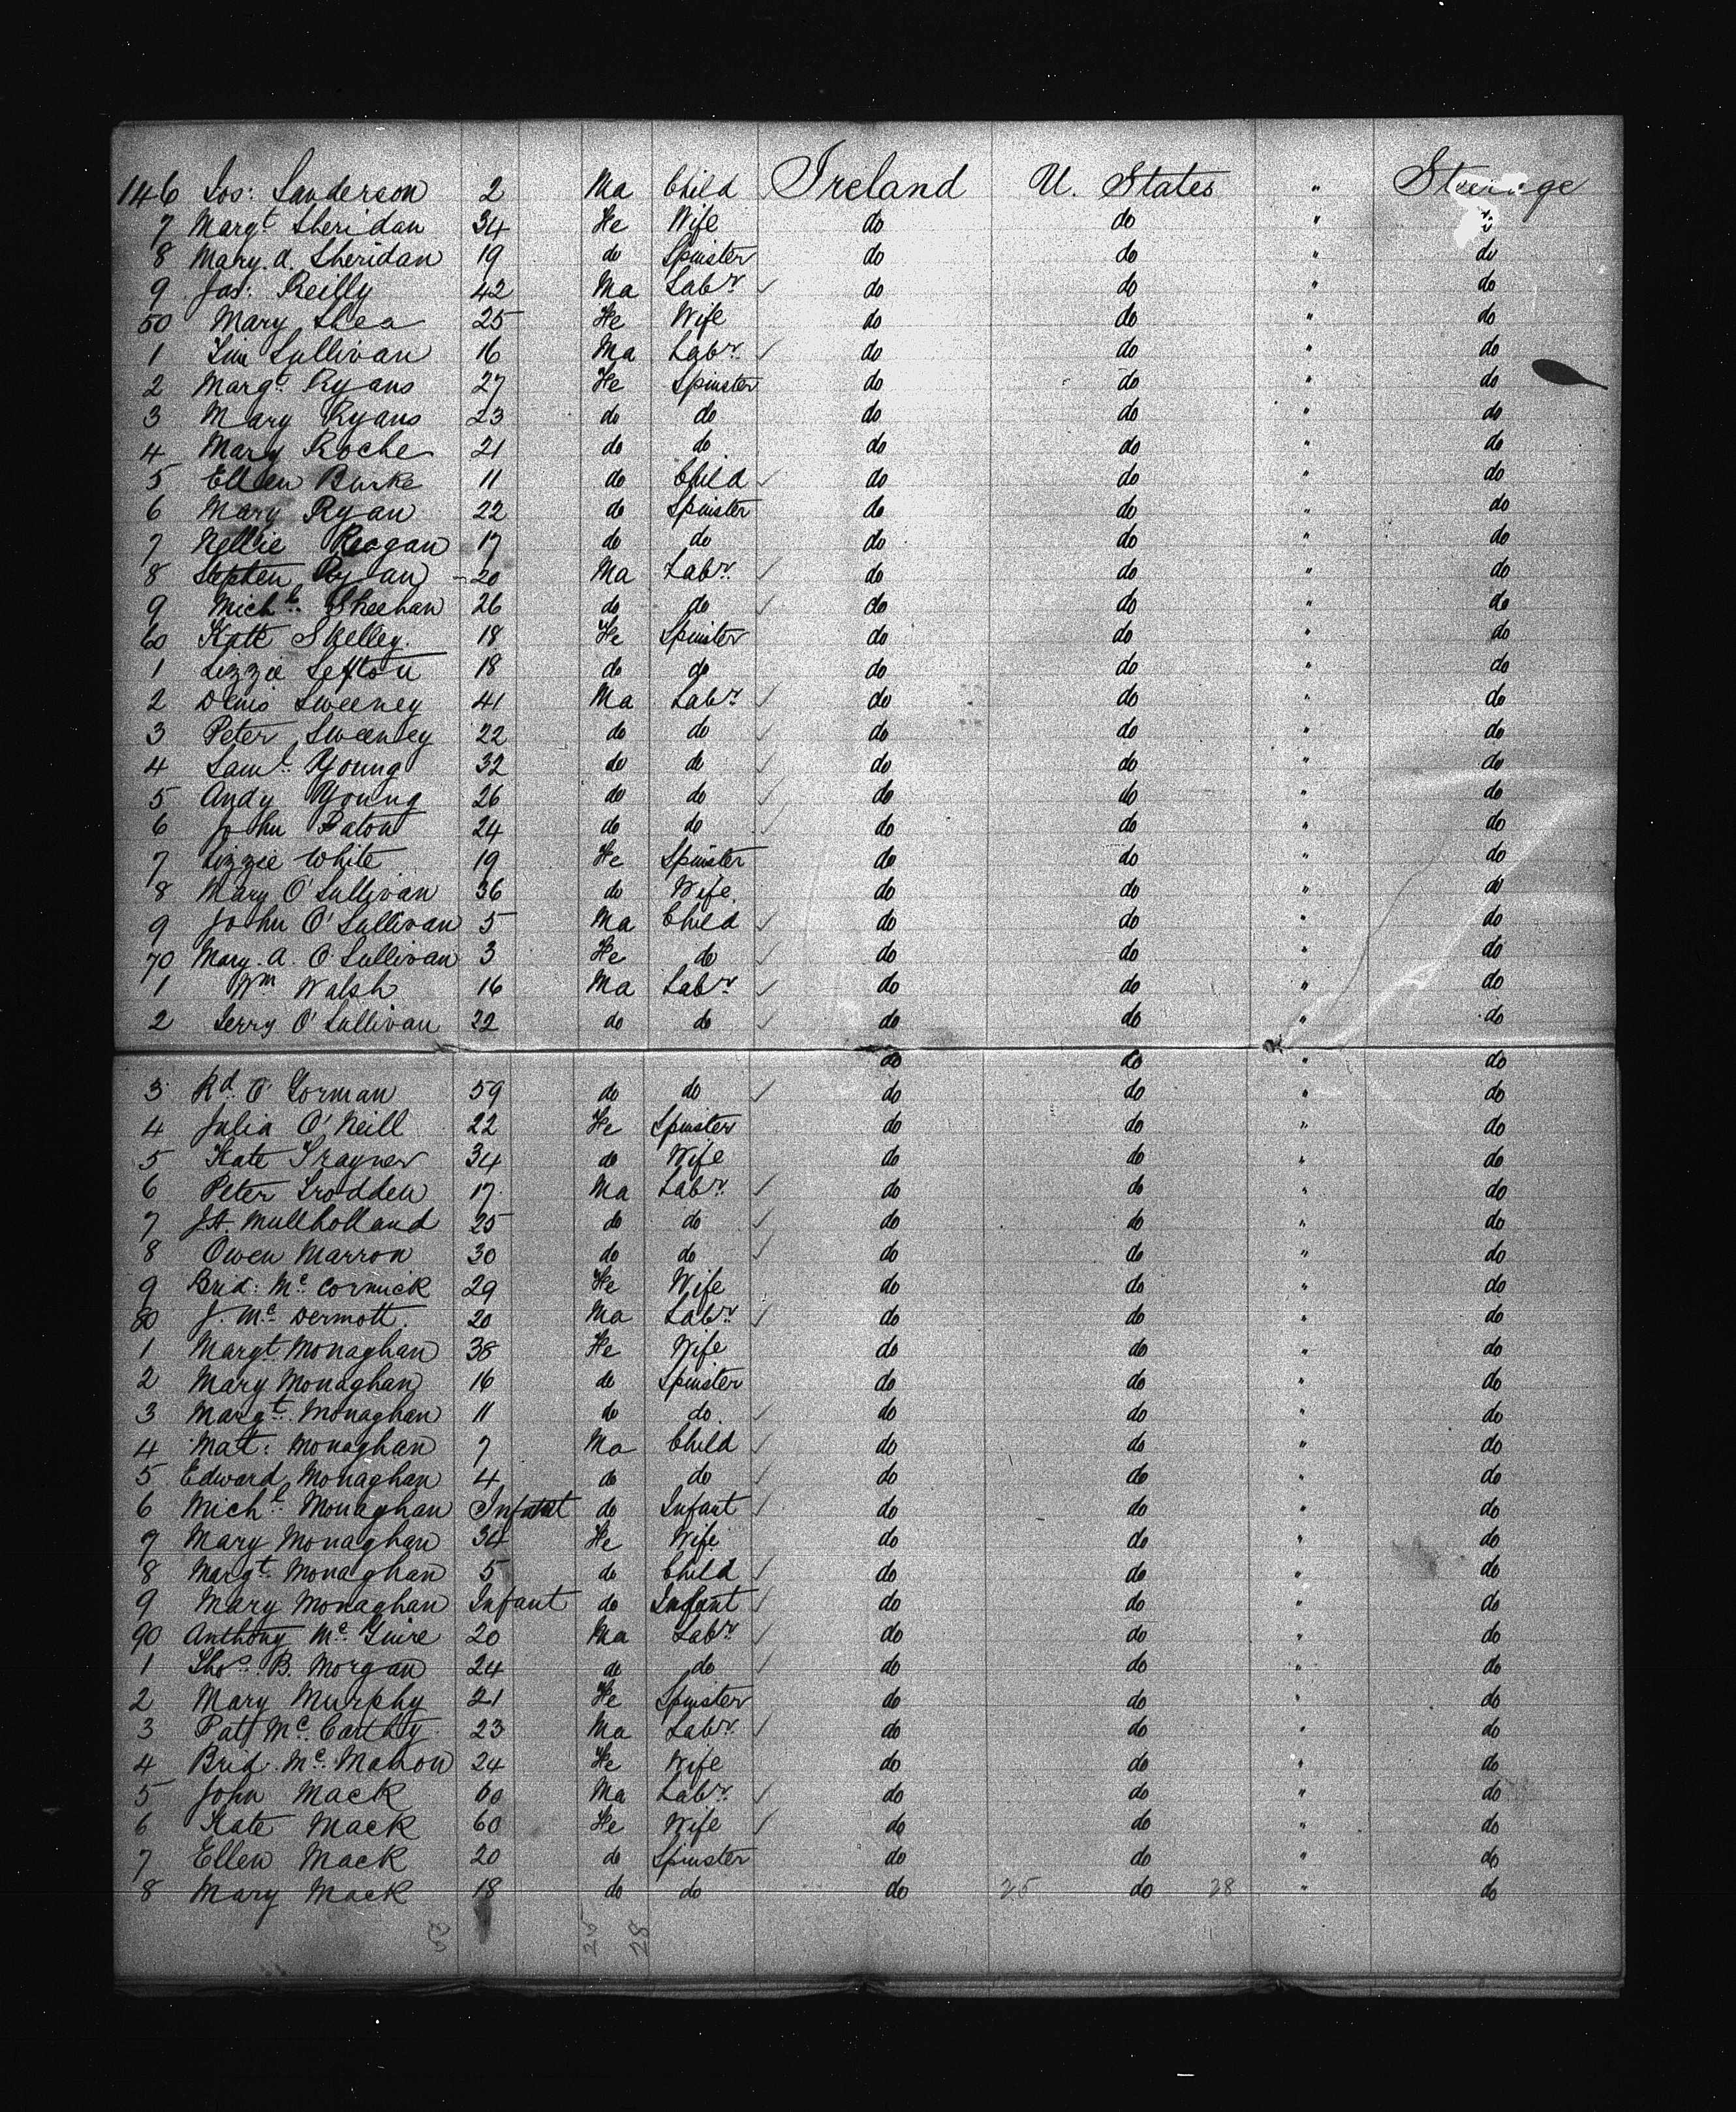 146 Jos: Sanderson 2 Ma Child Ireland U. States " Steerage
7 Margt Sheridan 34 Fe Wife do do "
8 Mary. A. Sheridan 19 do Spinster do do " do
9 Jas: Reilly 42 Ma Labr ✓ do do " do
50 Mary Shea 25 Fe Wife do do " do
1 Tim Sullivan 16 Ma Labr ✓ do do " do
2 Margt Ryans 27 Fe Spinster do do " do
3 Mary Ryans 23 do do do do " do
4 Mary Roche 21 do do do do " do
5 Ellen Burke 11 do Child ✓ do do " do
6 Mary Ryan 22 do Spinster do do " do
7 Nellie Reagan 17 do do do do " do
8 Stephen Ryan 20 Ma Labr ✓ do do " do
9 Michl Sheehan 26 do do ✓ do do " do
60 Kate Skelley. 18 Fe Spinster do do " do
1 Lizzie Sefton 18 do do do do " do
2 Denis Sweeney 41 Ma Labr ✓ do do " do
3 Peter Sweeney 22 do do ✓ do do " do
4 Saml Young 32 do do ✓ do do " do
5 Andy Young 26 do do ✓ do do " do
6 John Paton 24 do do ✓ do do " do
7 Lizzie White 19 Fe Spinster do do " do
8 Mary O'Sullivan 36 do Wife. do do " do
9 John O'Sullivan 5 Ma Child ✓ do do " do
70 Mary. A. O'Sullivan 3 Fe do ✓ do do " do
1 Wm Walsh 16 Ma Labr ✓ do do " do
2 Jerry O'Sullivan 22 do do ✓ do do " do
do do " do
3 Rd O'Gorman 59 do do ✓ do do " do
4 Julia O'Neill 22 Fe Spinster do do " do
5 Kate Traynor 34 do Wife do do " do
6 Peter Trodden 17 Ma Labr ✓ do do " do
7 Mullholland 25 do do ✓ do do " do
8 Owen Marron 30 do do ✓ do do " do
9 Brid: Mc Cormick 29 Fe Wife do do " do
80 J. Mc Dermott. 20 Ma Labr ✓ do do " do
1 Margt Monaghan 38 Fe Wife do do " do
2 Mary Monaghan 16 do Spinster do do " do
3 Margt Monaghan 11 do do. ✓ do do " do
4 Mat: Monaghan 7 Ma Child ✓ do do " do
5 Edward Monaghan 4 do do ✓ do do " do
6 Michl Monaghan Infant do Infant ✓ do do " do
7 Mary Monaghan 34 Fe Wife do do " do
8 Margt Monaghan 5 do Child ✓ do do " do
9 Mary Monaghan Infant do Infant ✓ do do " do
90 Anthony Mc Guire 20 Ma Labr ✓ do do " do
1 Thos B. Morgan 24 do do ✓ do do " do
2 Mary Murphy 21 Fe Spinster do do " do
3 Patt Mc Carthy 23 Ma Labr ✓ do do " do
4 Brid. Mc Mahon 24 Fe Wife do do " do
5 John Mack 60 Ma Labr ✓ do do " do
6 Kate Mack 60 Fe Wife ✓ do do " do
7 Ellen Mack 20 do Spinster do do " do
8 Mary Mack 18 do do do 25 do 28 " do
53 25 28